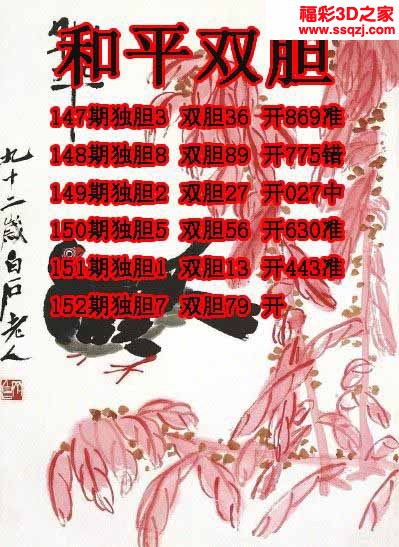 福彩3D之家
www.ssqzj.com
和平
和平双胆
147期独胆3 双胆36 开869准
148期独胆8 双胆89 开775错
149期独胆2 双胆27 开027中
150期独胆5 双胆56 开630准
151期独胆1 双胆13 开443准
152期独胆7 双胆79 开
九十二岁白石老人